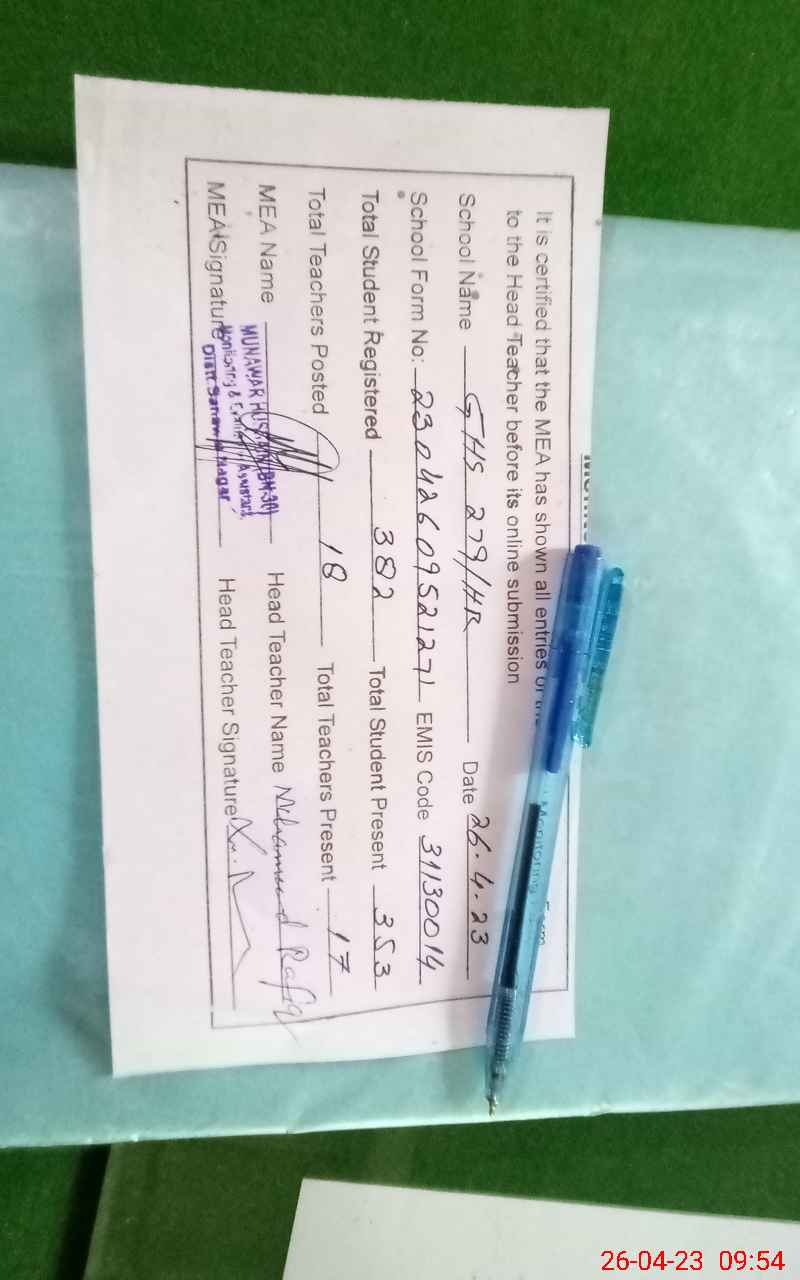 It is certified that the MEA has shown all entries of the Monitoring Form
to the Head Teacher before its online submission
School Name GHS 279/HR Date 26.4.23
School Form No: 23042609521271 EMIS Code 31130014
Total Student Registered 382 Total Student Present 353
Total Teachers Posted 18 Total Teachers Present 17
MEA Name MUNAWAR Head Teacher Name Mohammad Rafiq
MEA Signature Monitoring & Assistant Head Teacher Signature
Distt Nagar
26-04-23 09:54